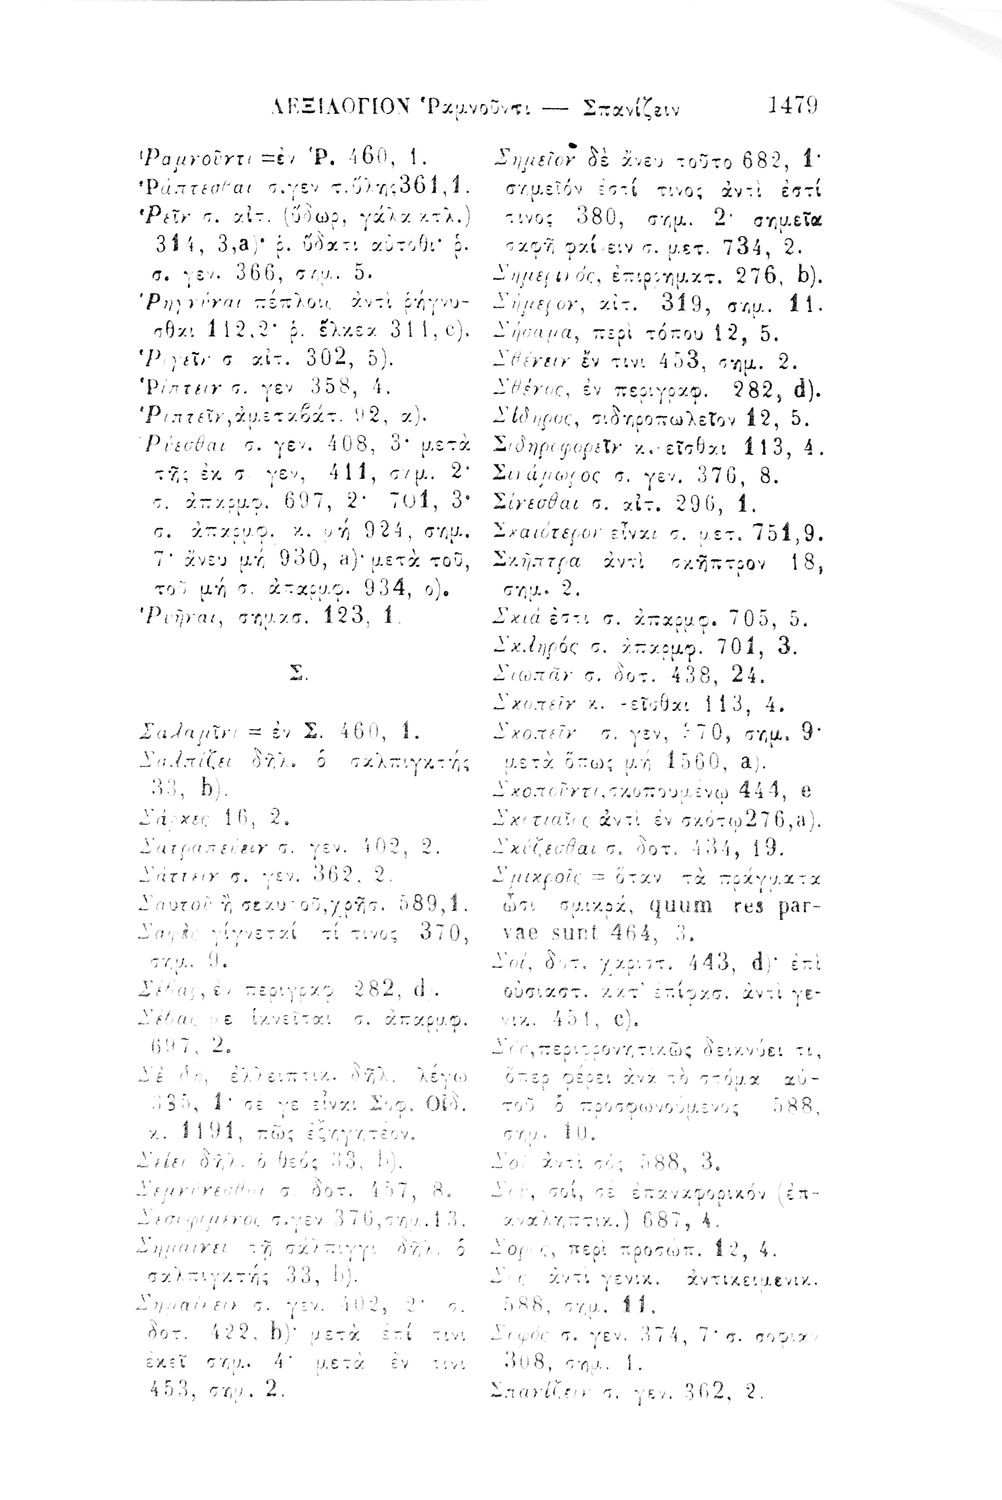 ΛΕΞΙΛΟΓΙΟΝ Ῥαμνοῦντι — Σπανίζειν 1479
Ῥαμνοῦντι =ἐν Ῥ. 460, 1.
Ῥάπτεσθαι σ.γεν τ.ὕλης361,1.
Ῥεῖν σ. αἰτ. (ὕδωρ, γάλα κτλ.)
314, 3,a)· ῥ. ὕδατι αὐτοθι· ῥ.
σ. γεν. 366, σημ. 5.
Ῥηγνύναι πέπλους ἀντὶ ῥήγνυ-
σθαι 112,2· ῥ. ἕλκεα 311,c).
Ῥιγεῖν σ αἰτ. 302, 5).
Ῥίπτειν σ. γεν 358, 4.
Ῥιπτεῖν,ἀμεταβάτ. 92, α).
Ῥύεσθαι σ. γεν. 408, 3· μετὰ
τῆς ἐκ σ γεν, 411, σημ. 2·
σ. ἀπαρμφ. 697, 2· 701, 3·
σ. ἀπαρμφ. κ. μή 924, σημ.
7· ἄνευ μή 930, a)· μετὰ τοῦ,
τοῦ μή σ. ἀπαρμφ. 934, ο).
Ῥυῆναι, σημασ. 123, 1.
Σ.
Σαλαμῖνι = ἐν Σ. 460, 1.
Σαλπίζει δῆλ. ὁ σαλπιγκτής
33, b).
Σάρκες 16, 2.
Σατραπεύειν σ. γεν. 402, 2.
Σάττειν σ. γεν. 362, 2.
Σαυτοῦ ἢ σεαυτοῦ,χρῆσ. 589,1.
Σαφὲς γίγνεταί τί τινος 370,
σημ. 9.
Σέβας, ἐν περιγραφ 282, d).
Σέβας με ἱκνεῖται σ. ἀπαρμφ.
697, 2.
Σὲ δή, ἐλλειπτικ. δῆλ. λέγω
335, 1· σέ γε εἶναι Σοφ. Οἰδ.
κ. 1191, πῶς ἐξηγητέον.
Σείει δῆλ. ὁ θεός 33, b).
Σεμνύνεσθαι σ. δοτ. 457, 8.
Σεσωφιμένος σ.γεν 376,σημ.13.
Σημαίνει τῇ σάλπιγγι δῆλ. ὁ
σαλπιγκτής 33, b).
Σημαίνειν σ. γεν. 402, 2· σ.
δοτ. 422, b)· μετὰ ἐπί τινι
ἐκεῖ σημ. 4· μετὰ ἐν τινι
453, σημ. 2.
Σημεῖον δὲ ἄνευ τοῦτο 682, 1·
σημεῖόν ἐστί τινος ἀντὶ ἐστί
τινος 380, σημ. 2· σημεῖα
σαφῆ φαίνειν σ. μετ. 734, 2.
Σημερινός, ἐπιρρηματ. 276, b).
Σήμερον, αἰτ. 319, σημ. 11.
Σήσαμα, περὶ τόπου 12, 5.
Σθένειν ἔν τινι 453, σημ. 2.
Σθένος, ἐν περιγραφ. 282, d).
Σίδηρος, σιδηροπωλεῖον 12, 5.
Σιδηροφορεῖν κ.-εῖσθαι 113, 4.
Σινάμωρος σ. γεν. 376, 8.
Σίνεσθαι σ. αἰτ. 296, 1.
Σκαιότερον εἶναι σ. μετ. 751,9.
Σκῆπτρα ἀντὶ σκῆπτρον 18,
σημ. 2.
Σκιά ἐστι σ. ἀπαρμφ. 705, 5.
Σκληρός σ. ἀπαρμφ. 701, 3.
Σιωπᾶν σ. δοτ. 438, 24.
Σκοπεῖν κ. -εῖσθαι 113, 4.
Σκοπεῖν σ. γεν, 370, σημ. 9·
μετὰ ὅπως μή 1560, a).
Σκοποῦντι,σκοπουμένῳ 444, e
Σκοτιαῖος ἀντὶ ἐν σκότῳ276,a).
Σκύζεσθαι σ. δοτ. 434, 19.
Σμικροῖς = ὅταν τὰ πράγματα
ὦσι σμικρά, quum res par-
vae sunt 464, 3.
Σοί, δοτ. χαριστ. 443, d)· ἐπὶ
οὐσιαστ. κατ' ἐπίφασ. ἀντὶ γε-
νικ. 451, c).
Σός,περιφρονητικῶς δεικνύει τι,
ὅπερ φέρει ἀνὰ τὸ στόμα αὐ-
τοῦ ὁ προσφωνούμενος 588,
σημ. 10.
Σοῦ ἀντὶ σός 588, 3.
Σοῦ, σοί, σὲ ἐπαναφορικόν (ἐπ-
αναληπτικ.) 687, 4.
Σορός, περὶ προσώπ. 12, 4.
Σὸς ἀντὶ γενικ. ἀντικειμενικ.
588, σημ. 11.
Σοφός σ. γεν. 374, 7· σ. σοφίαν
308, σημ. 1.
Σπανίζειν σ. γεν. 362, 2.